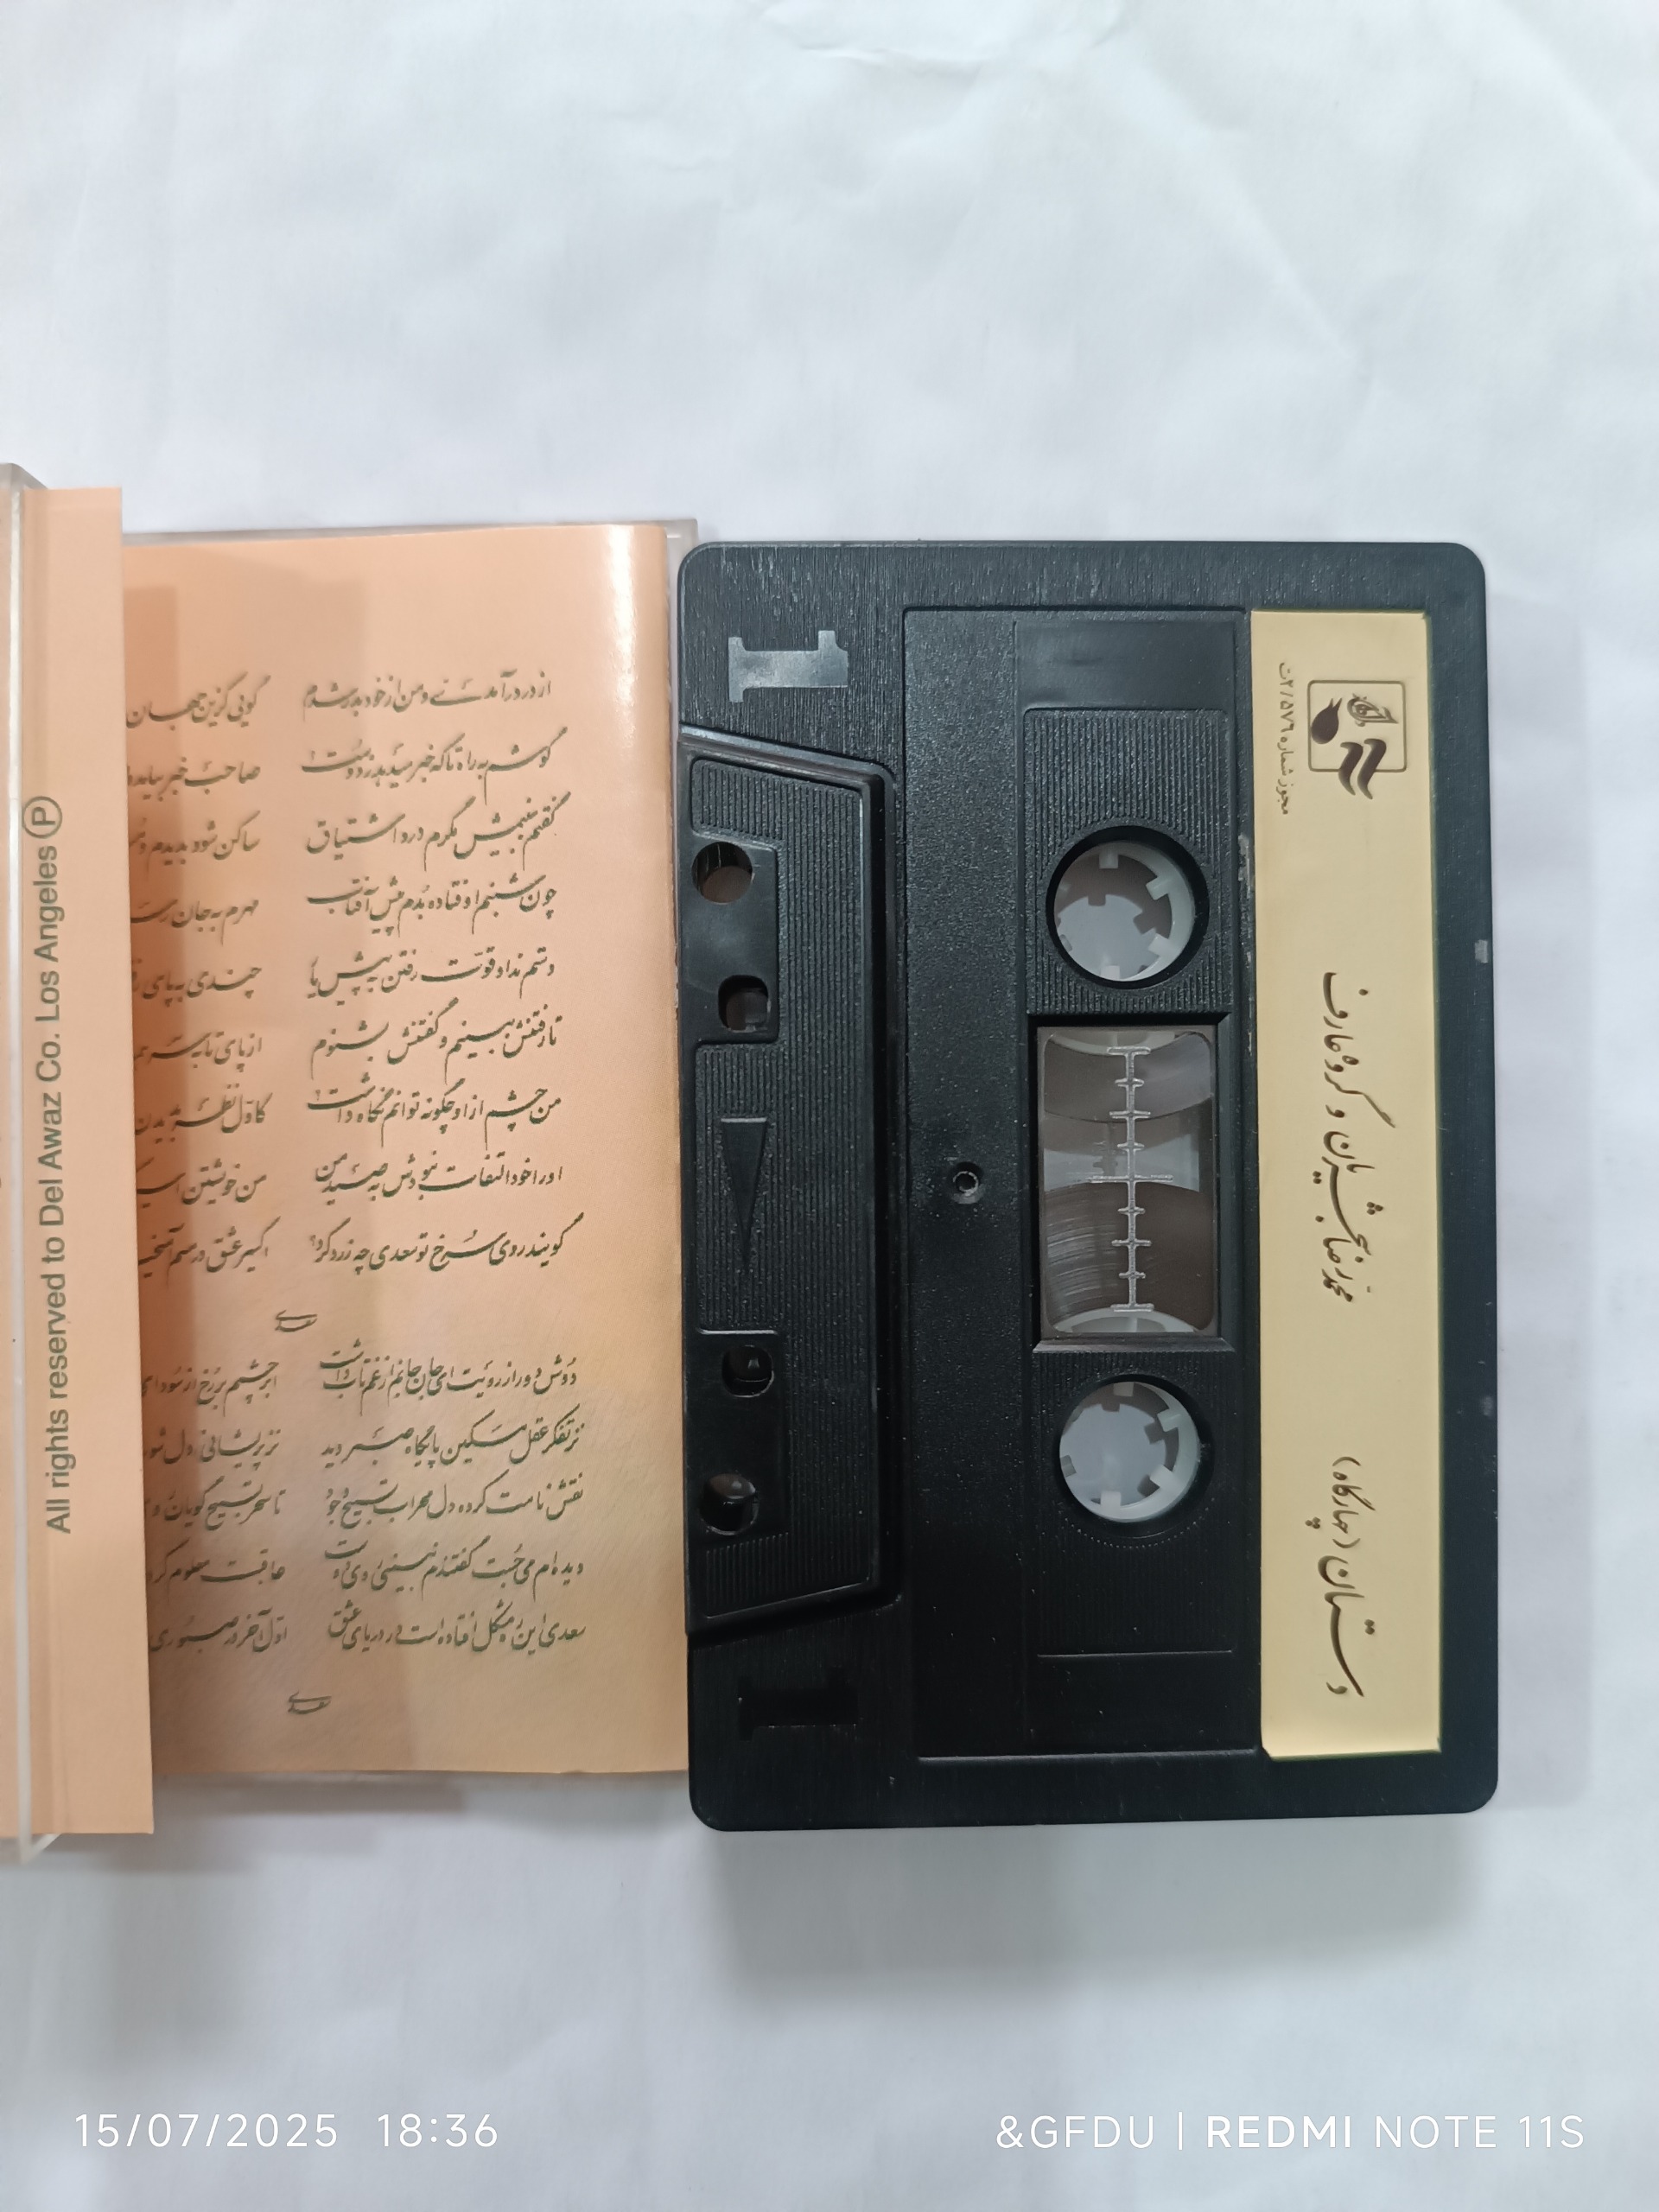 از در درآمدی و من از خود بدر شدم گویی کزین جهان
گوشم به راه تا که خبر میدهد ز دوست صاحب خبر بیامد
گفتم ببینمش مگرم درد اشتیاق ساکن شود بدیدم و
چون شبنم اوفتاده بُدم پیش آفتاب مهرم به جان
دستم نداد قوّت رفتن به پیش یار چندی به پای
تا رفتنش ببینم و گفتنش بشنوم از پای تا به سر
من چشم ازاو چگونه توانم نگاه داشت کاوّل نظر به دیدن
او را خود التفات نبودش به صید من من خویشتن
گویند روی سرخ تو سعدی چه زرد کرد؟ اکسیر عشق در مسم
سعدی
دوش دور از رویت ای جان جانم از غم تاب داشت ابر چشمم بر رخ از سودای
نز تفکر عقل مسکین پایگاه صبر دید نز پریشانی دل
نقش نامت کرده دل محراب تسبیح وجود تا سحر تسبیح گویان
دیده‌ام می جست گفتندم نبینی روی دوست عاقبت معلوم کر
سعدی این ره مشکل افتاده است در دریای عشق اول آخر در صبوری
سعدی
All rights reserved to Del Awaz Co. Los Angeles Ⓟ
I
I
دل آواز
مجوز شماره ۲/۵۷۶ت
دستان (چهارگاه) محمدرضا شجریان و گروه عارف
15/07/2025 18:36
&GFDU | REDMI NOTE 11S